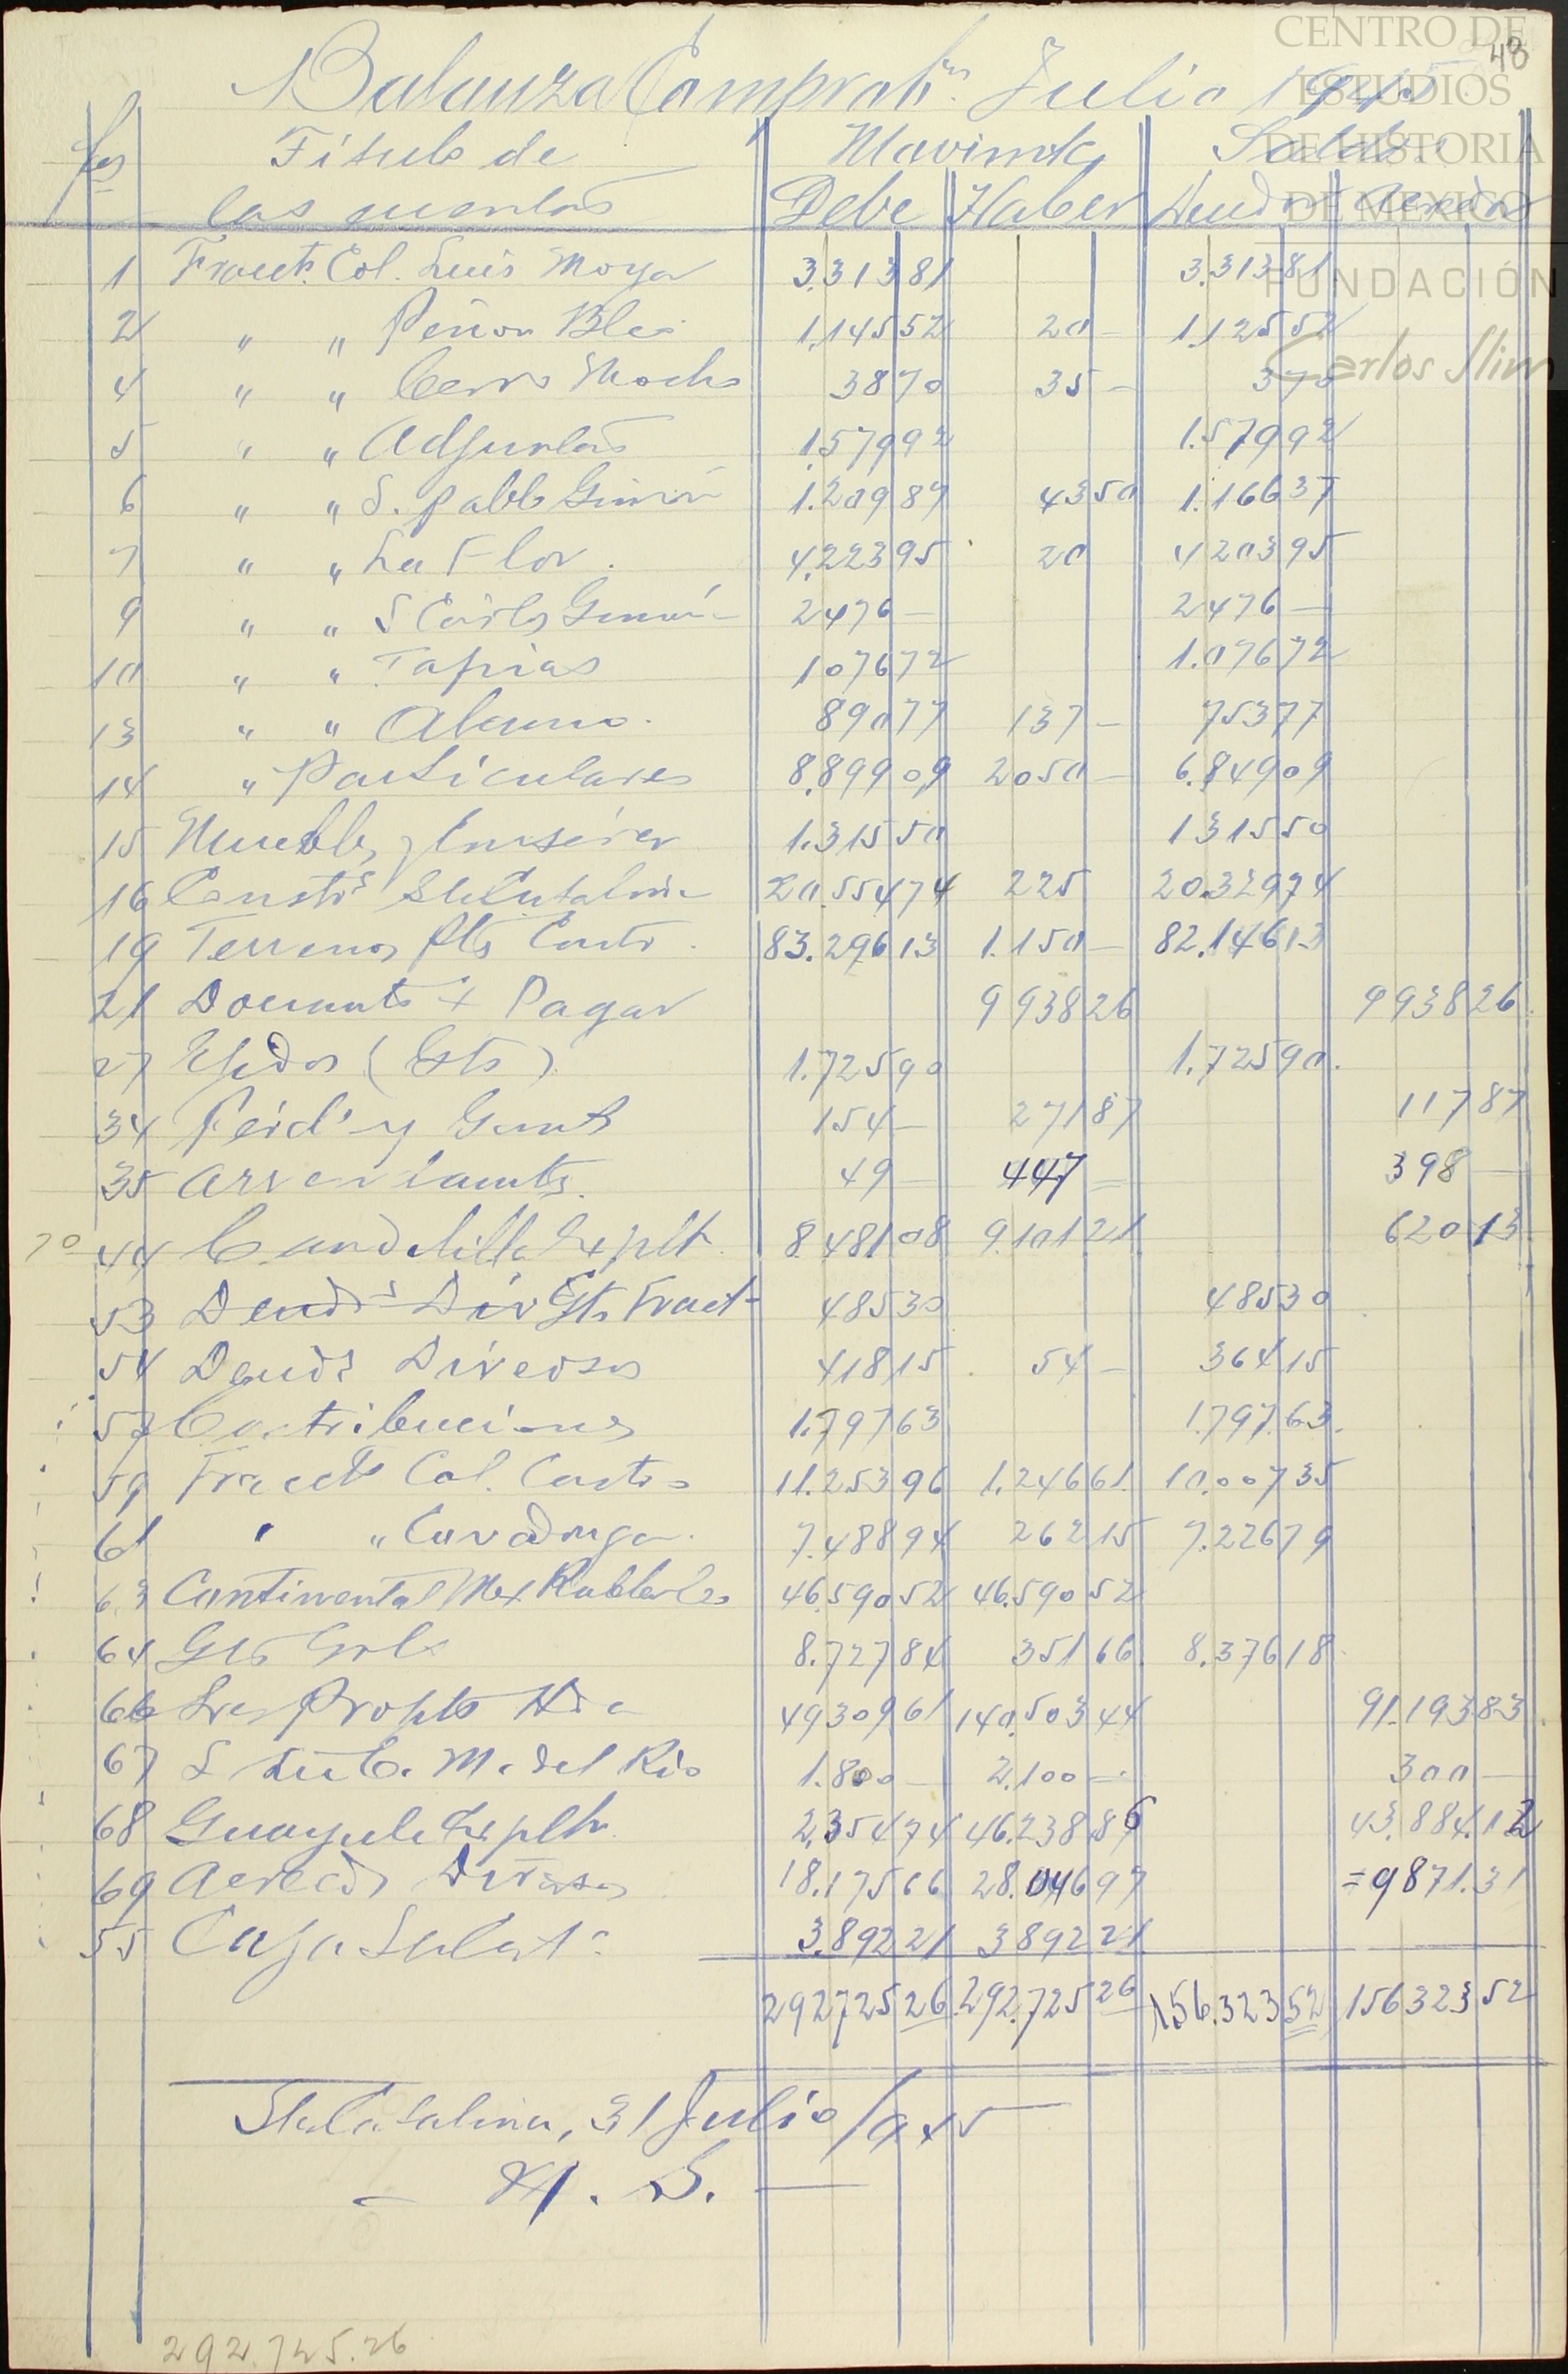 CENTRO DE
ESTUDIOS
DE HISTORIA
DE MEXICO
FUNDACIÓN
Carlos Slim
48
Balanza Comprobn. Julio 1945.
Fos Título de Movimtos Saldos
las cuentas Debe Haber Deudor Acredor
1 Fracto. Col. Luis Moya 3.313 81 3.313 81
2 " " Peñon Blco 1.145 52 20 — 1.125 52
4 " " Cerro Mocho 38 70 35 — 3 70
5 " " Adjuntas 1.579 92 1.579 92
6 " " S. Pablo Gimón 1.209 87 43 50 1.166 37
7 " " La Flor. 4.223 95 20 4 203 95
9 " " S Carlos Gimón 2476 — 2476 —
10 " " Tapias 1076 72 1.076 72
13 " " Alamo. 890 77 137 — 753 77
14 " Particulares 8.899 09 2050 — 6.849 09
15 Muebles y Enseres 1.315 50 1315 50
16 Constrs Sta Catalina 20.554 74 225 20329 74
19 Terrenos Ptos Contr. 83.296 13 1.150 — 82.146 13
21 Documts x Pagar 9 938 26 9 938 26
27 Ejidos (Gts) 1.725 90 1.725 90
34 Perds y Gans 154 — 271 87 117 87
35 Arrendamts. 49 — 447 — 398 —
70 44 Candelilla Explt. 8 481 08 9.101 21 620 13
53 Deuds Div Gts Fract 485 30 485 30
54 Deuds Diversos 418 15 54 — 364 15
57 Contribuciones 1.797 63 1.797.63
59 Fracto Col. Castro 11.253 96 1.246 61 10.007 35
61 " " Covadonga. 7.488 94 262 15 7.226 79
63 Continental Mex Rubber Co 46.590 52 46.590 52
64 Gts Grls 8.727 84 351 66 8.376 18
66 Sres Propts Hda 49309 61 140.503 44 91.193 83
67 S Luc C. M. del Rio 1.800 — 2.100 — 300 —
68 Guayule Explt. 2.354 74 46.238 86 43.884.12
69 Acreeds Diversos 18.175 66 28.046 97 = 9871.31
55 Caja Sta Cat. 3.892 21 3892 21
292725 26 292.725 26 156.323 52 156323 52
Sta Catalina, 31 Julio /945
— H. S. —
292.725.26